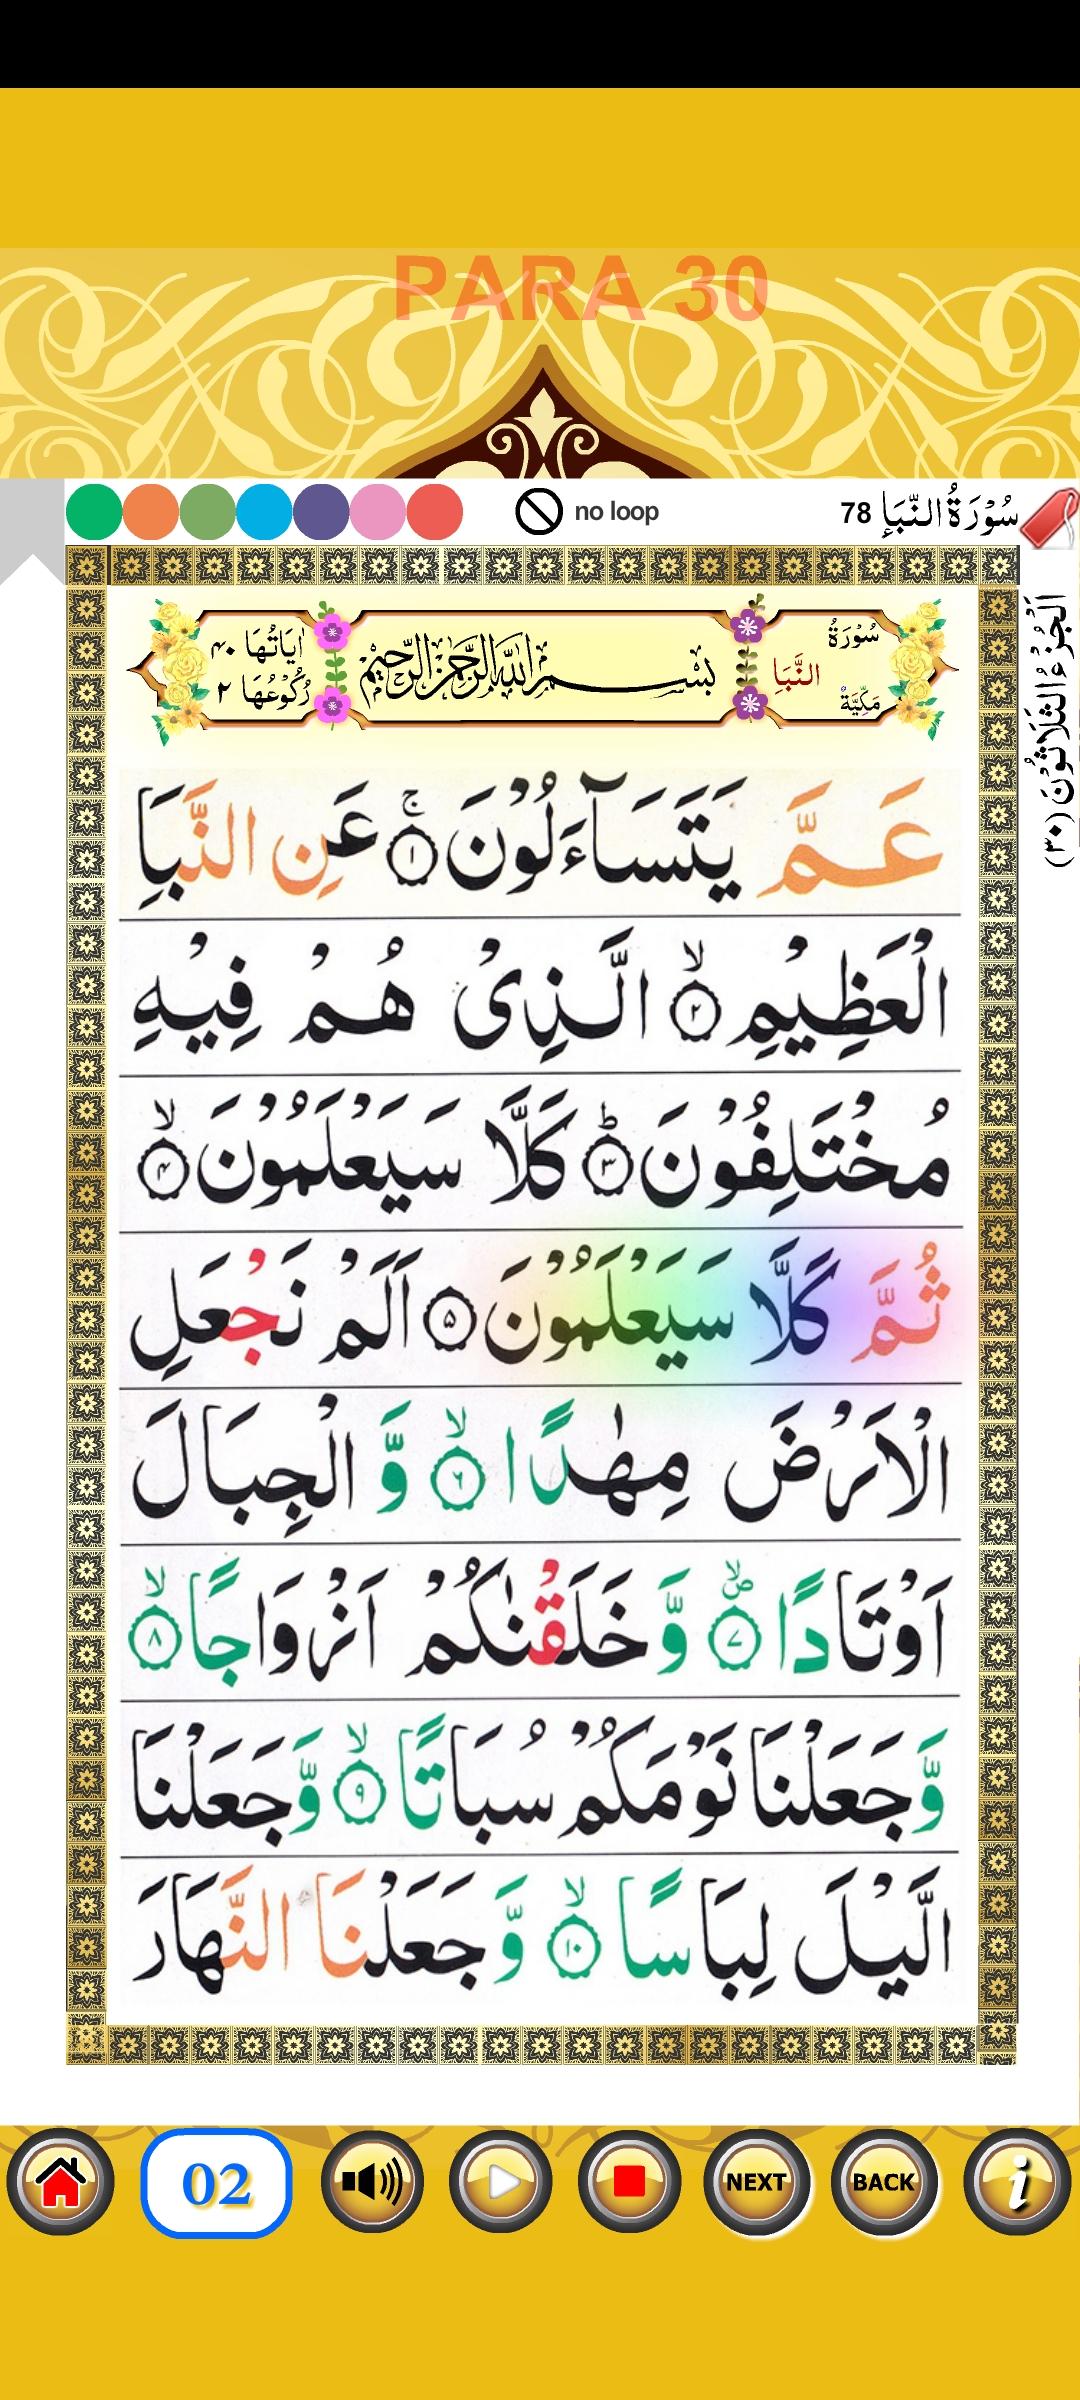 PARA 30
no loop
78 سُوْرَةُ النَّبَإِ
اَلْجُزْءُ الثَّلَاثُوْنَ (٣٠)
سُوْرَةُ
النَّبَا
مَكِّيَّةٌ
بِسْمِ اللّٰهِ الرَّحْمٰنِ الرَّحِيْمِ
اٰيَاتُهَا ۴۰
رُكُوْعُهَا ۲
عَمَّ يَتَسَآءَلُوْنَ ۚ‏﴿۱﴾ عَنِ النَّبَاِ
الْعَظِيْمِ ۙ‏﴿۲﴾ الَّذِىْ هُمْ فِيْهِ
مُخْتَلِفُوْنَ ؕ‏﴿۳﴾ كَلَّا سَيَعْلَمُوْنَ ۙ‏﴿۴﴾
ثُمَّ كَلَّا سَيَعْلَمُوْنَ ‏﴿۵﴾ اَلَمْ نَجْعَلِ
الْاَرْضَ مِهٰدًا ۙ‏﴿۶﴾ وَّ الْجِبَالَ
اَوْتَادًا ۙ‏ۖ﴿۷﴾ وَّ خَلَقْنٰكُمْ اَزْوَاجًا ۙ‏﴿۸﴾
وَّجَعَلْنَا نَوْمَكُمْ سُبَاتًا ۙ‏﴿۹﴾ وَّجَعَلْنَا
الَّيْلَ لِبَاسًا ۙ‏﴿۱۰﴾ وَّ جَعَلْنَا النَّهَارَ
02
NEXT
BACK
i